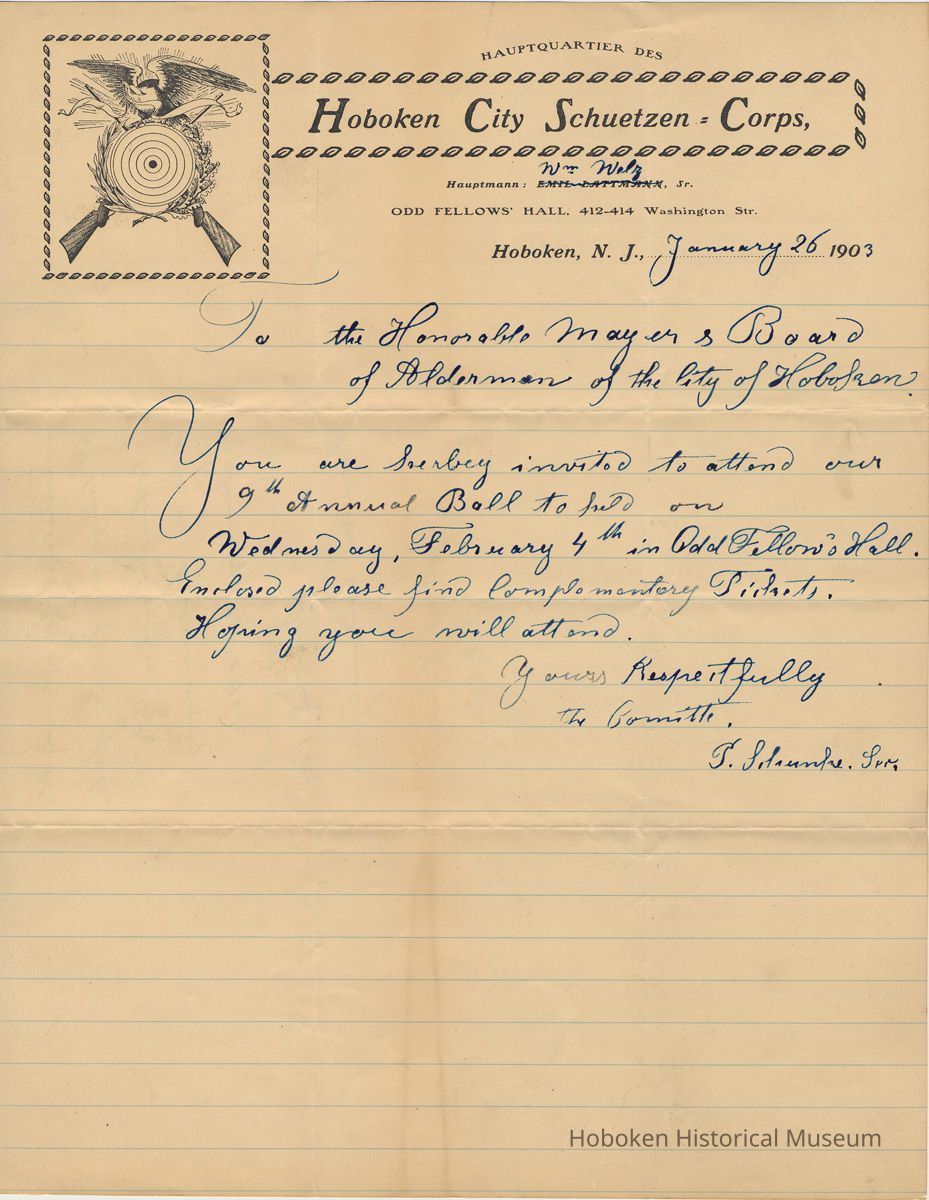 HAUPTQUARTIER DES
Hoboken City Schuetzen = Corps,
Wm Welz
Hauptmann: EMIL LATTMANN, Sr.
ODD FELLOWS' HALL, 412-414 Washington Str.
Hoboken, N. J., January 26 1903
To the Honorable Mayer & Board
of Alderman of the City of Hoboken.
You are herbey invited to attend our
9th Annual Ball to held on
Wednesday, February 4th in Odd Fellow's Hall.
Enclosed please find Complementary Tickets.
Hoping you will attend.
Yours Respectfully
the Comitte.
P. Schunke. Sec.
Hoboken Historical Museum